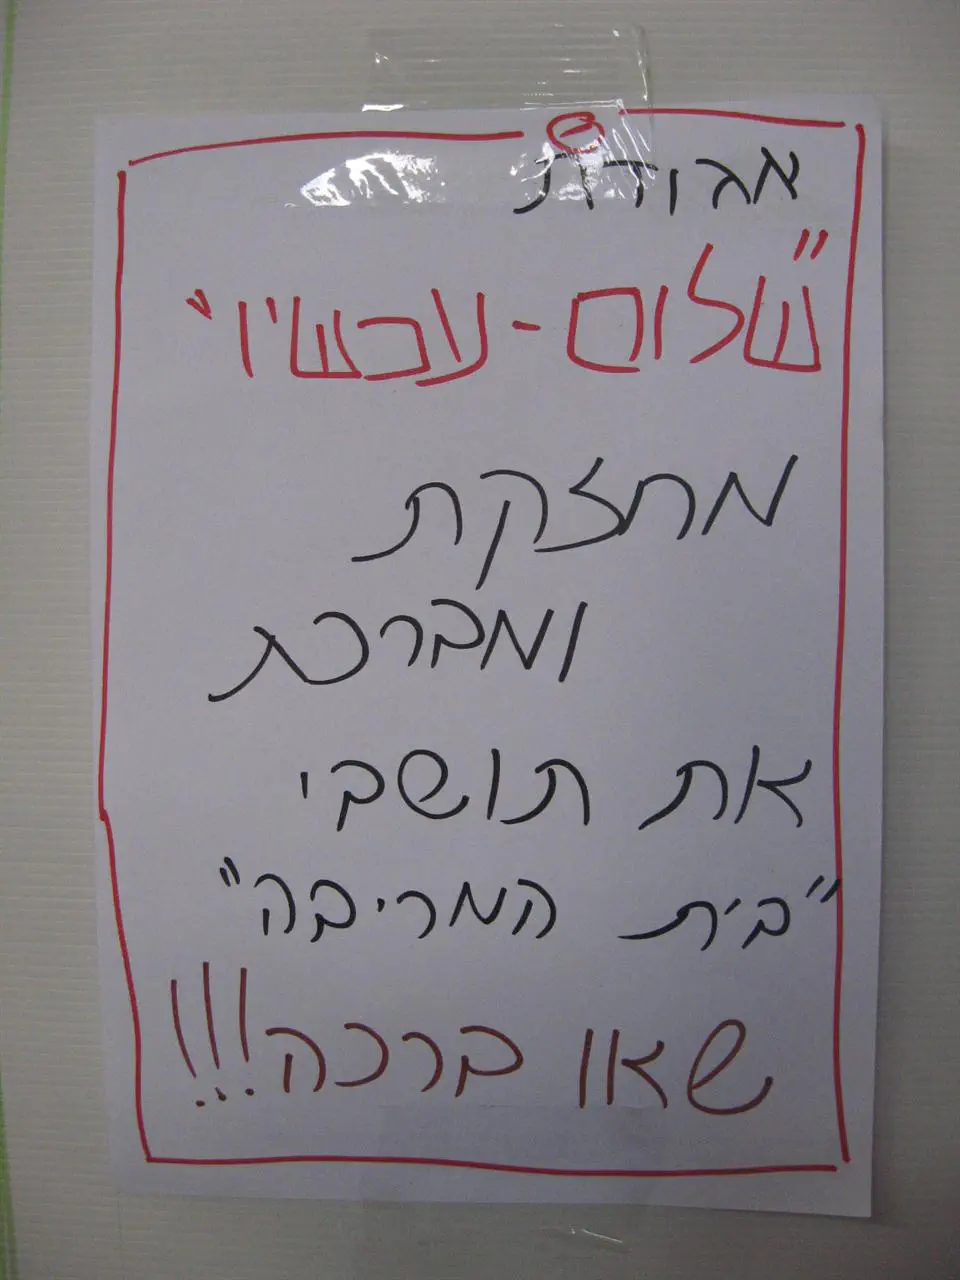 אגודת
"שלום-עכשיו"
מחזקת
ומברכת
את תושבי
"בית המריבה"
שאו ברכה!!!